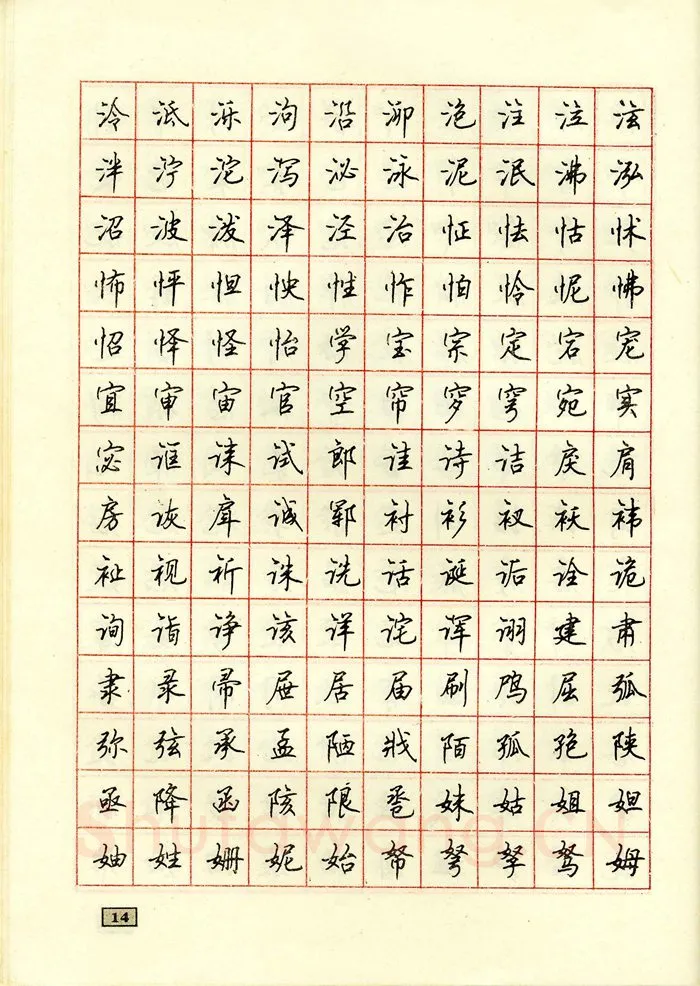 泠泜泺泃沿泖泡注泣泫
泮泞沱泻泌泳泥泯沸泓
沼波泼泽泾治怔怯怙怵
怖怦怛怏性怍怕怜怩怫
怊怿怪怡学宝宗定宕宠
宜审宙官空帘穸穹宛实
宓诓诔试郎诖诗诘戾肩
房诙戽诚郓衬衫衩祆祎
祉视祈诛诜话诞诟诠诡
询诣诤该详诧诨诩建肃
隶录帚屉居届刷鸤屈弧
弥弦承孟陋戕陌孤孢陕
亟降函陔限卺妹姑姐妲
Shufawang.CN
妯姓姗妮始帑弩孥驽姆
14